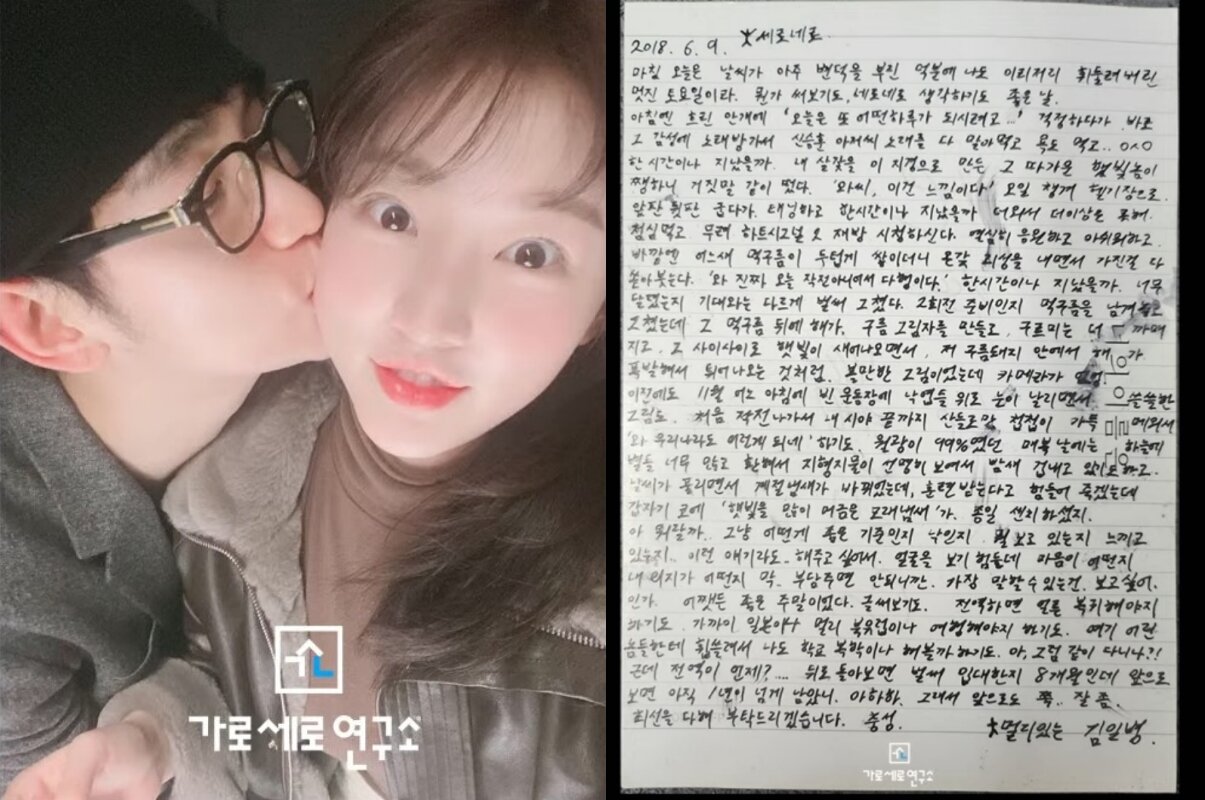 가로세로연구소
2018. 6. 9. 옷세로네로.
마침 오늘은 날씨가 아주 변덕을 부린 덕분에 나도 이리저리 휘둘려버린
멋진 토요일이라. 뭔가 써보기도, 세로네로 생각하기도 좋은 날.
아침엔 흐린 안개에 '오늘은 또 어떤하루가 되시려고...' 걱정하다가 바로
그 감성에 노래방가서 신승훈 아저씨 노래를 다 말아먹고 욕도 먹고.. ㅇㅅㅇ
한시간이나 지났을까. 내 살갗을 이 지경으로 만든 그 따가운 햇빛놈이
쨍하니 거짓말 같이 떴다. '와씨, 이건 느낌이다' 요일 챙겨 헬기장으로.
앞판 뒷판 굽다가. 태닝하고 한시간이나 지났을까 더워서 더이상은 못해.
점심먹고 무려 하트시그널 2 재방 시청하신다. 열심히 응원하고 아쉬워하고.
바깥엔 어느새 먹구름이 두텁게 쌓이더니 온갖 괴성을 내면서 가진걸 다
쏟아붓는다. '와 진짜 오늘 작전아니어서 다행이다.' 한시간이나 지났을까. 너무
달랬는지 기대와는 다르게 벌써 그쳤다. 2회전 준비인지 먹구름을 남겨놓고
그쳤는데 그 먹구름 뒤에 해가. 구름 그림자를 만들고, 구르미는 더 까매
지고. 그 사이사이로 햇빛이 새어나오면서, 저 구름돼지 안에서 해가
폭발해서 튀어나오는 것처럼. 볼만한 그림이었는데 카메라가
이전에도 11월 어느 아침에 빈 운동장에 낙엽들 위로 눈이 날리면서 쓸쓸한
그림도. 처음 작전나가서 내 시야 끝까지 산들로만 첩첩이 가득 메워서
'와 우리나라도 이렇게 되네' 하기도. 월광이 99%였던 매복 날에는 하늘에
별들 너무 많고 환해서 지형지물이 선명히 보여서 밤새 겁내고 있기도하고.
날씨가 풀리면서 계절냄새가 바뀌었는데, 훈련받는다고 힘들어 죽겠는데
갑자기 코에 '햇빛을 많이 머금은 모래냄새'가. 종일 센치하셨지.
아 뭐랄까.. 그냥 어떻게 좋은 기준인지 낙인지 뭘 보고 있는지 느끼고
있는지.. 이런 얘기라도.. 해주고 싶어서. 얼굴을 보기 힘든데 마음이 어떤지
내 의지가 어떤지 막.. 부담주면 안되니깐. 가장 말할수 있는건. 보고싶어.
인가. 어쨌든 좋은 주말이었다. 글써보기도. 전역하면 얼른 복귀해야지
하기도. 가까이 일본이나 멀리 북유럽이나 여행해야지 하기도. 여기 어린
놈들한테 휩쓸려서 나도 학교 복학이나 해볼까하기도. 아, 그럼 같이 다니나?!
근데 전역이 언제?.... 뒤로 돌아보면 벌써 입대한지 8개월인데 앞으로
보면 아직 1년이 넘게 남았니. 아하하. 그래서 앞으로도 쭉.. 잘 좀.
최선을 다해 부탁드리겠습니다. 충성.
멀리있는 김일병.
가로세로연구소